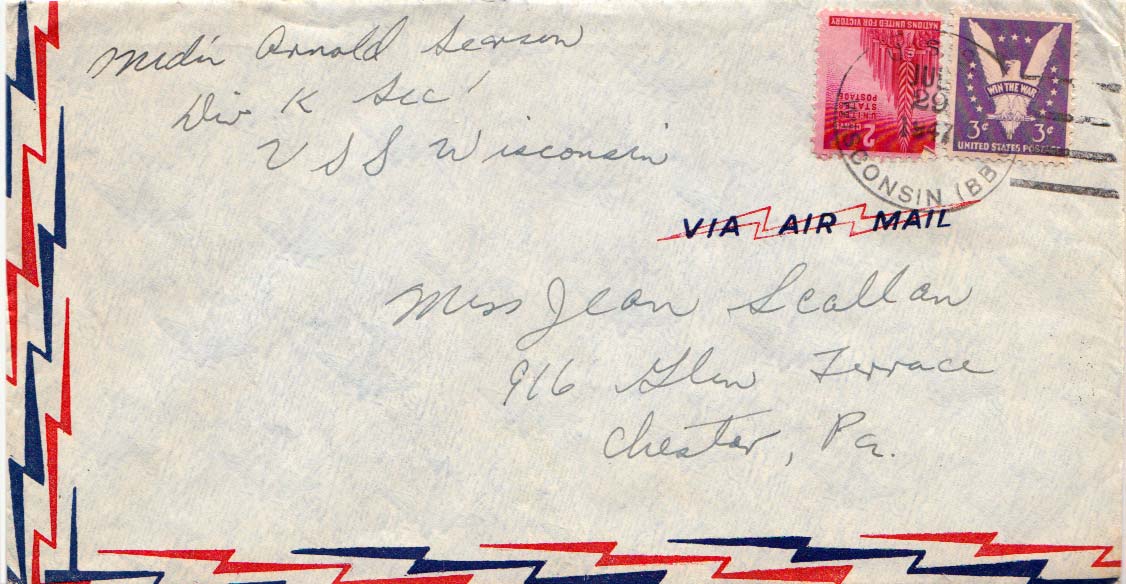 Midn Arnold Searson
Div K Sec 1
USS Wisconsin
NATIONS UNITED FOR VICTORY
UNITED STATES POSTAGE
2 CENTS
WIN THE WAR
3¢ 3¢
UNITED STATES POSTAGE
U.S.S.
29
1947
WISCONSIN (BB
VIA AIR MAIL
Miss Jean Scallan
916 Glen Terrace
Chester, Pa.